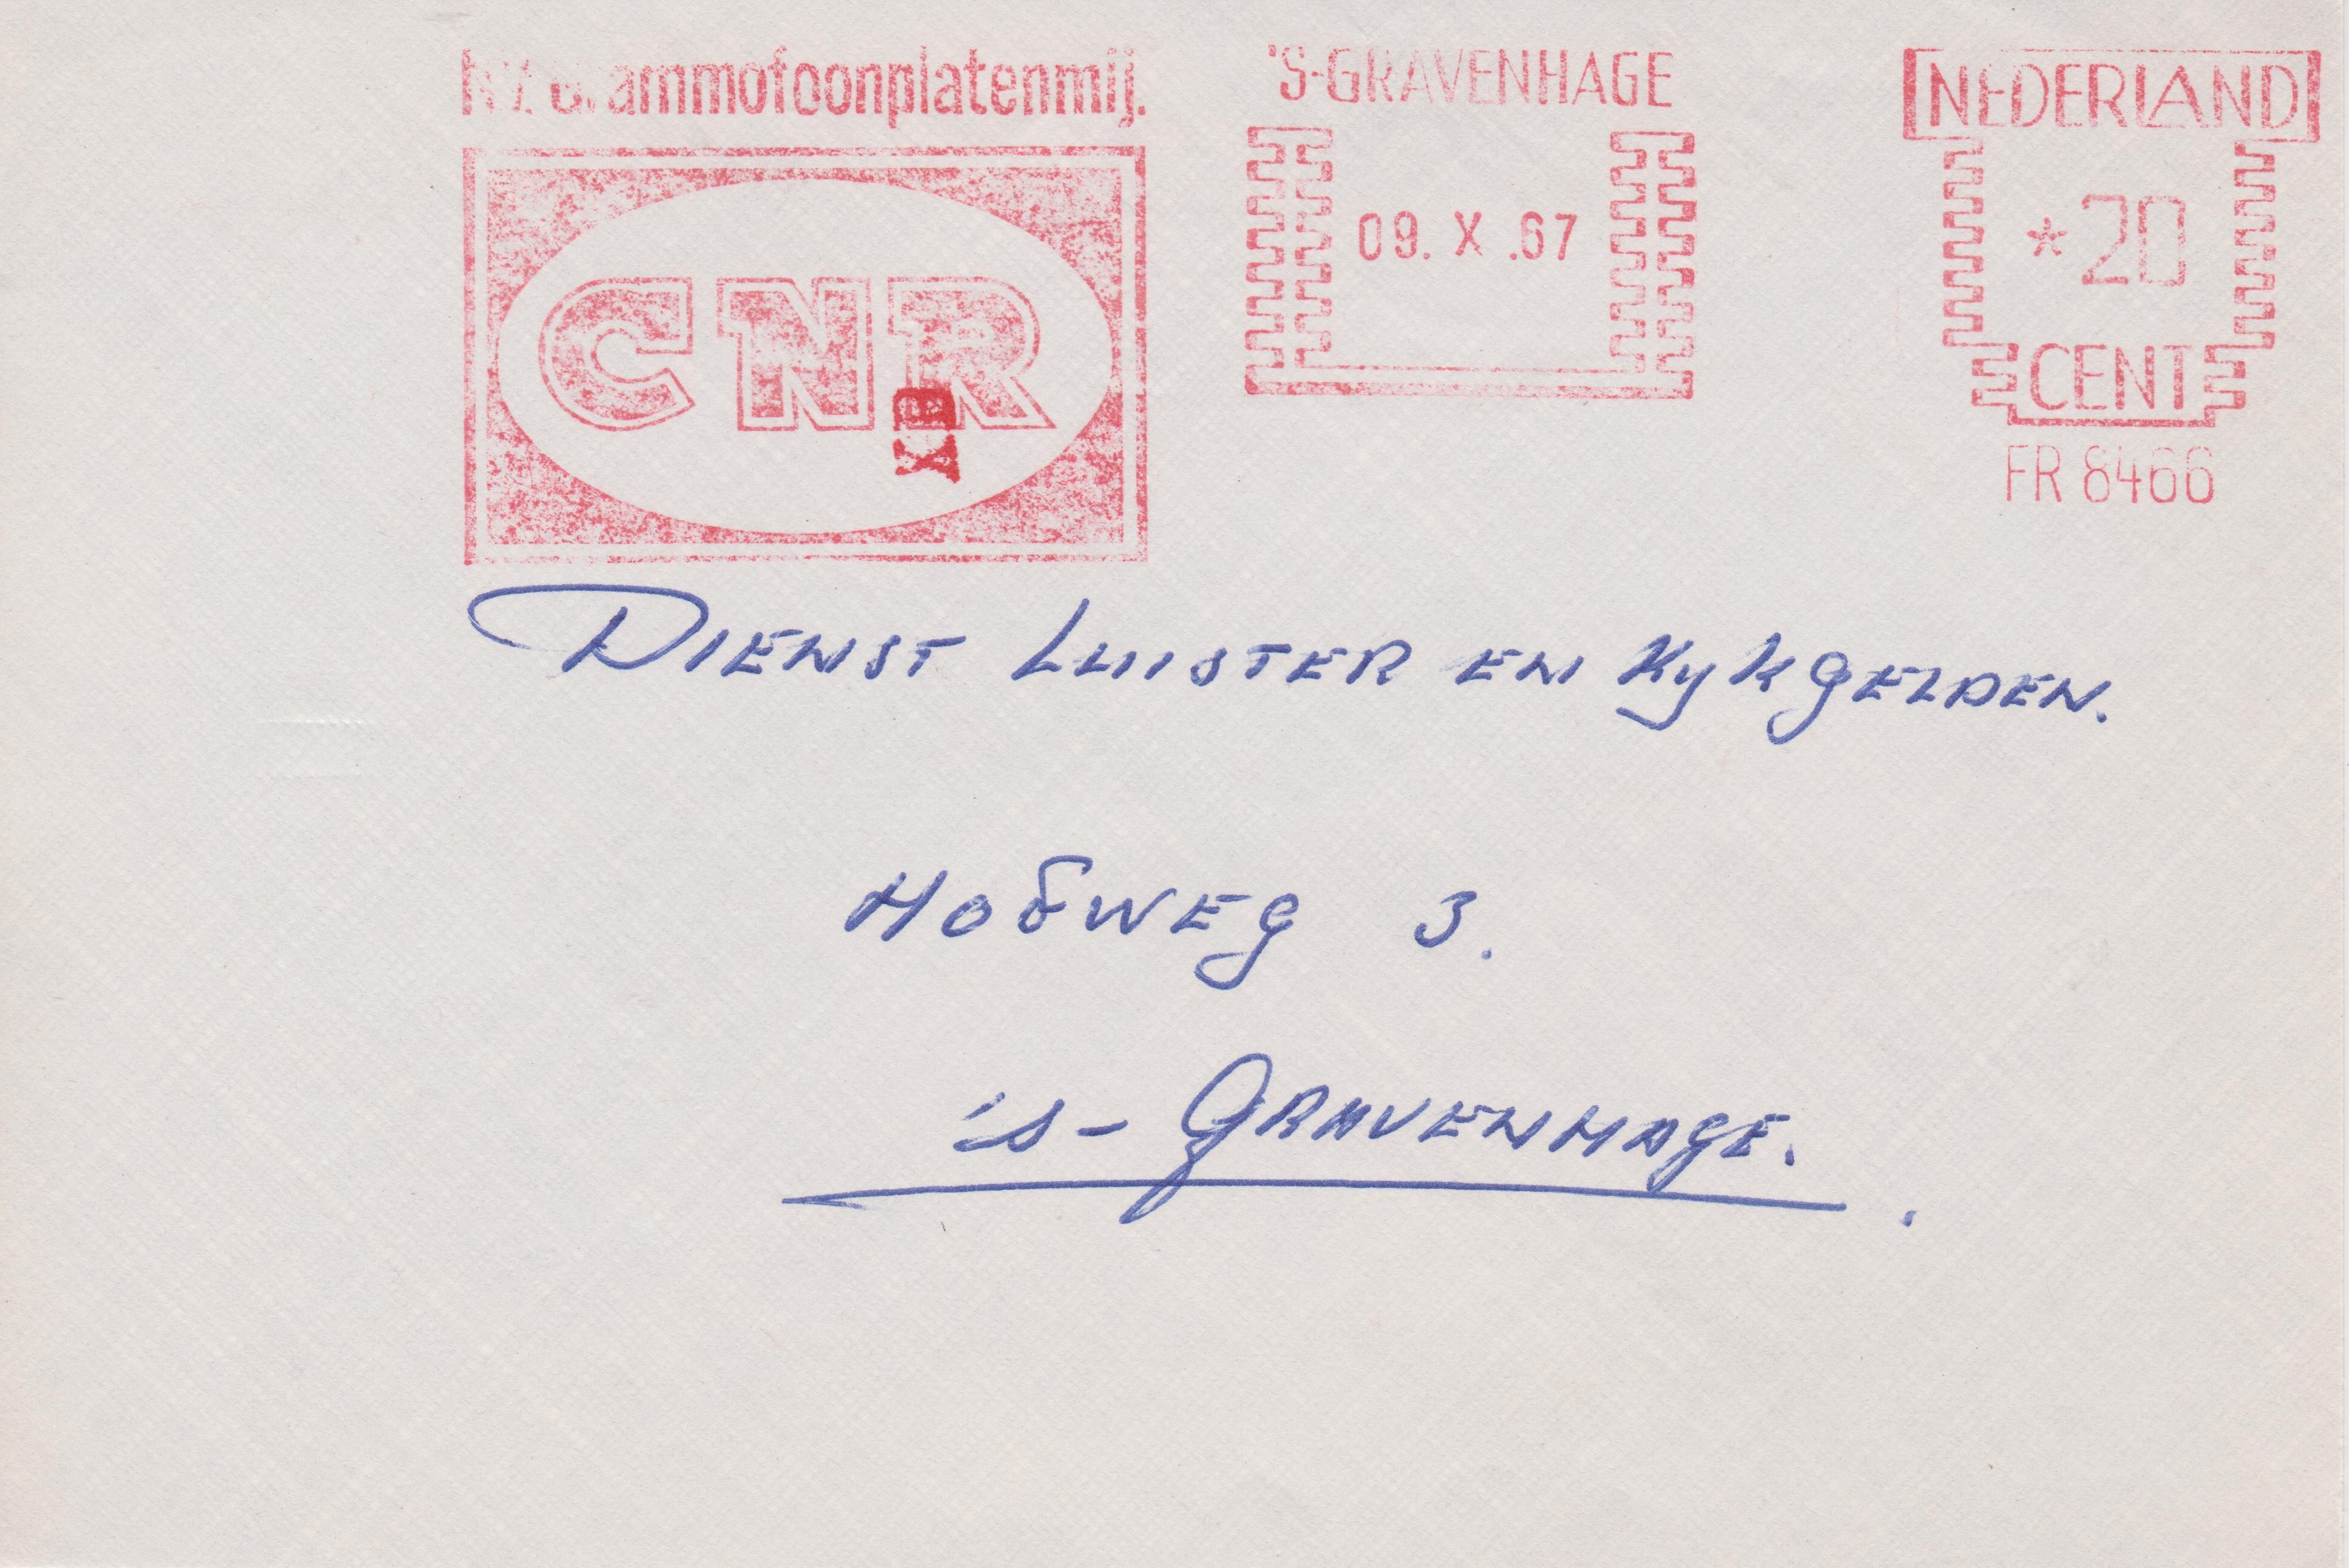 N.V. Grammofoonplatenmij.
CNR
XB
'S-GRAVENHAGE
09. X .67
NEDERLAND
* 20
CENT
FR 8466
DIENST LUISTER EN KYKGELDEN.
HOFWEG 3.
's-GRAVENHAGE.